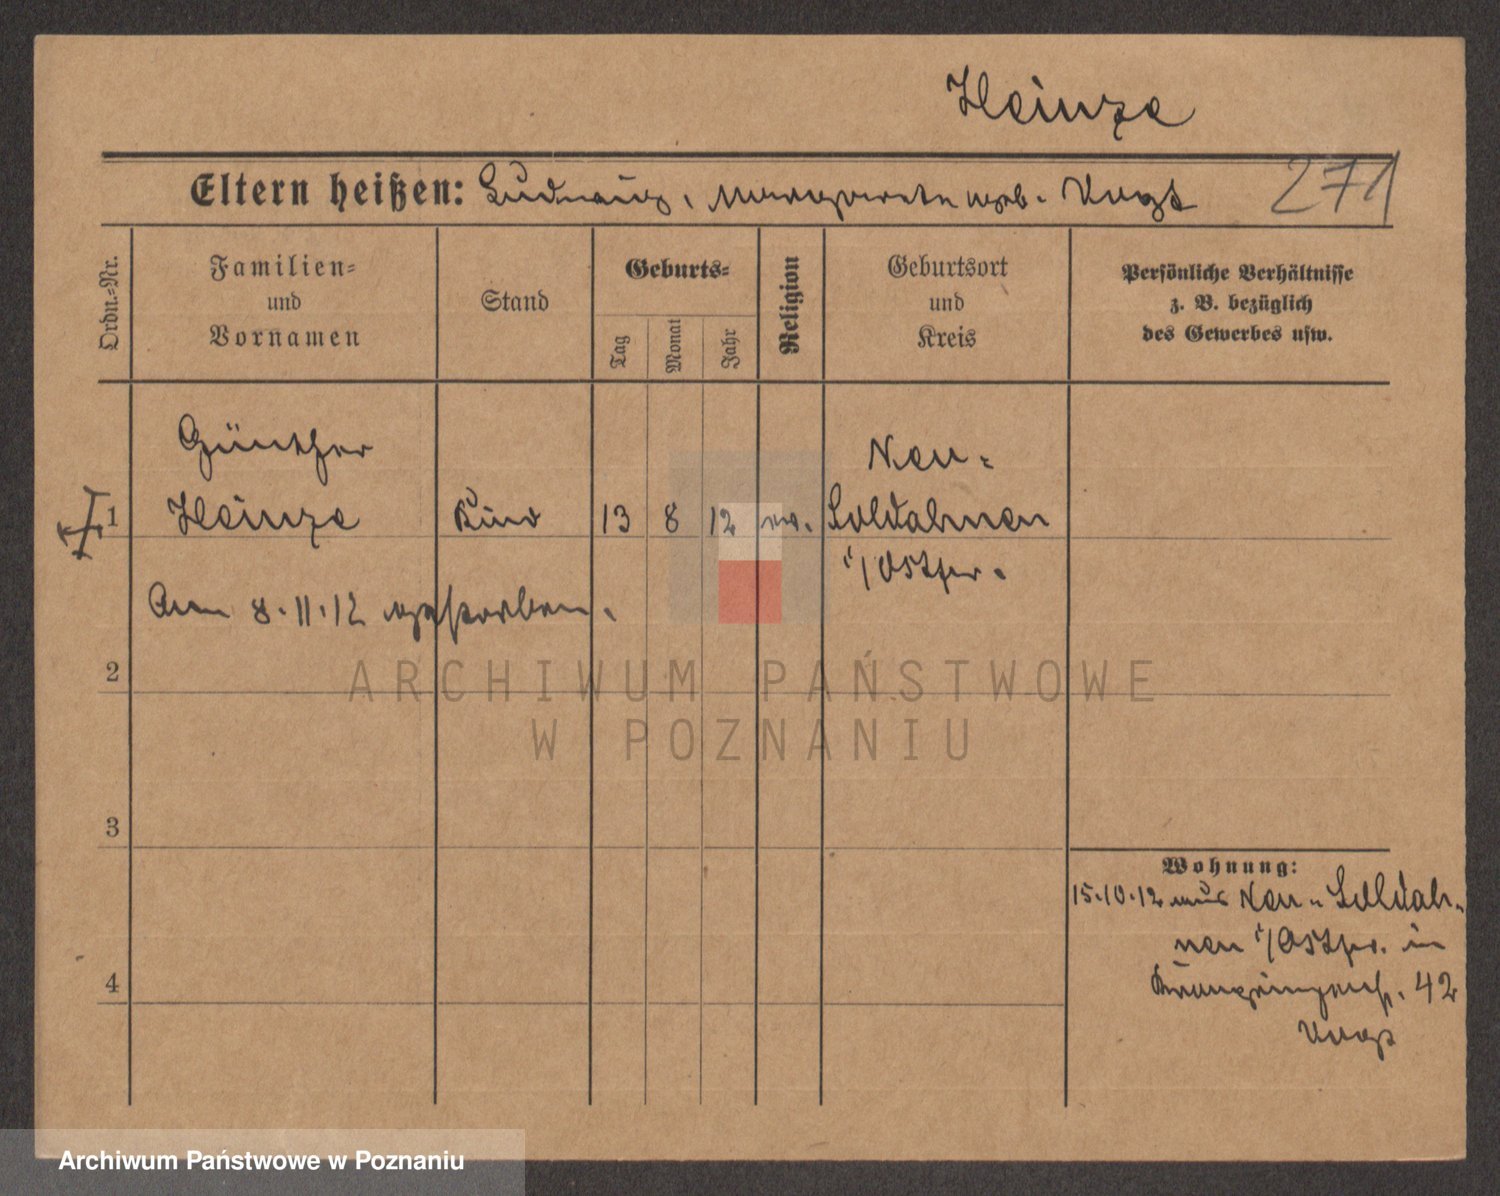 Heinze
Eltern heißen: Ludwig, Margarete geb. Vogt 271
Ordn.-Nr.
Familien-
und
Vornamen
Stand
Geburts-
Tag
Monat
Jahr
Religion
Geburtsort
und
Kreis
Persönliche Verhältnisse
z. B. bezüglich
des Gewerbes usw.
Günther
Heinze
1
Kind
13 8 12 ev.
Neu-
Soldahnen
i/Ostpr.
Am 8.11.12 gestorben.
2
3
4
Wohnung:
15.10.12 aus Neu-Soldah-
nen i/Ostpr. in
42
Vogt
ARCHIWUM PAŃSTWOWE
W POZNANIU
Archiwum Państwowe w Poznaniu